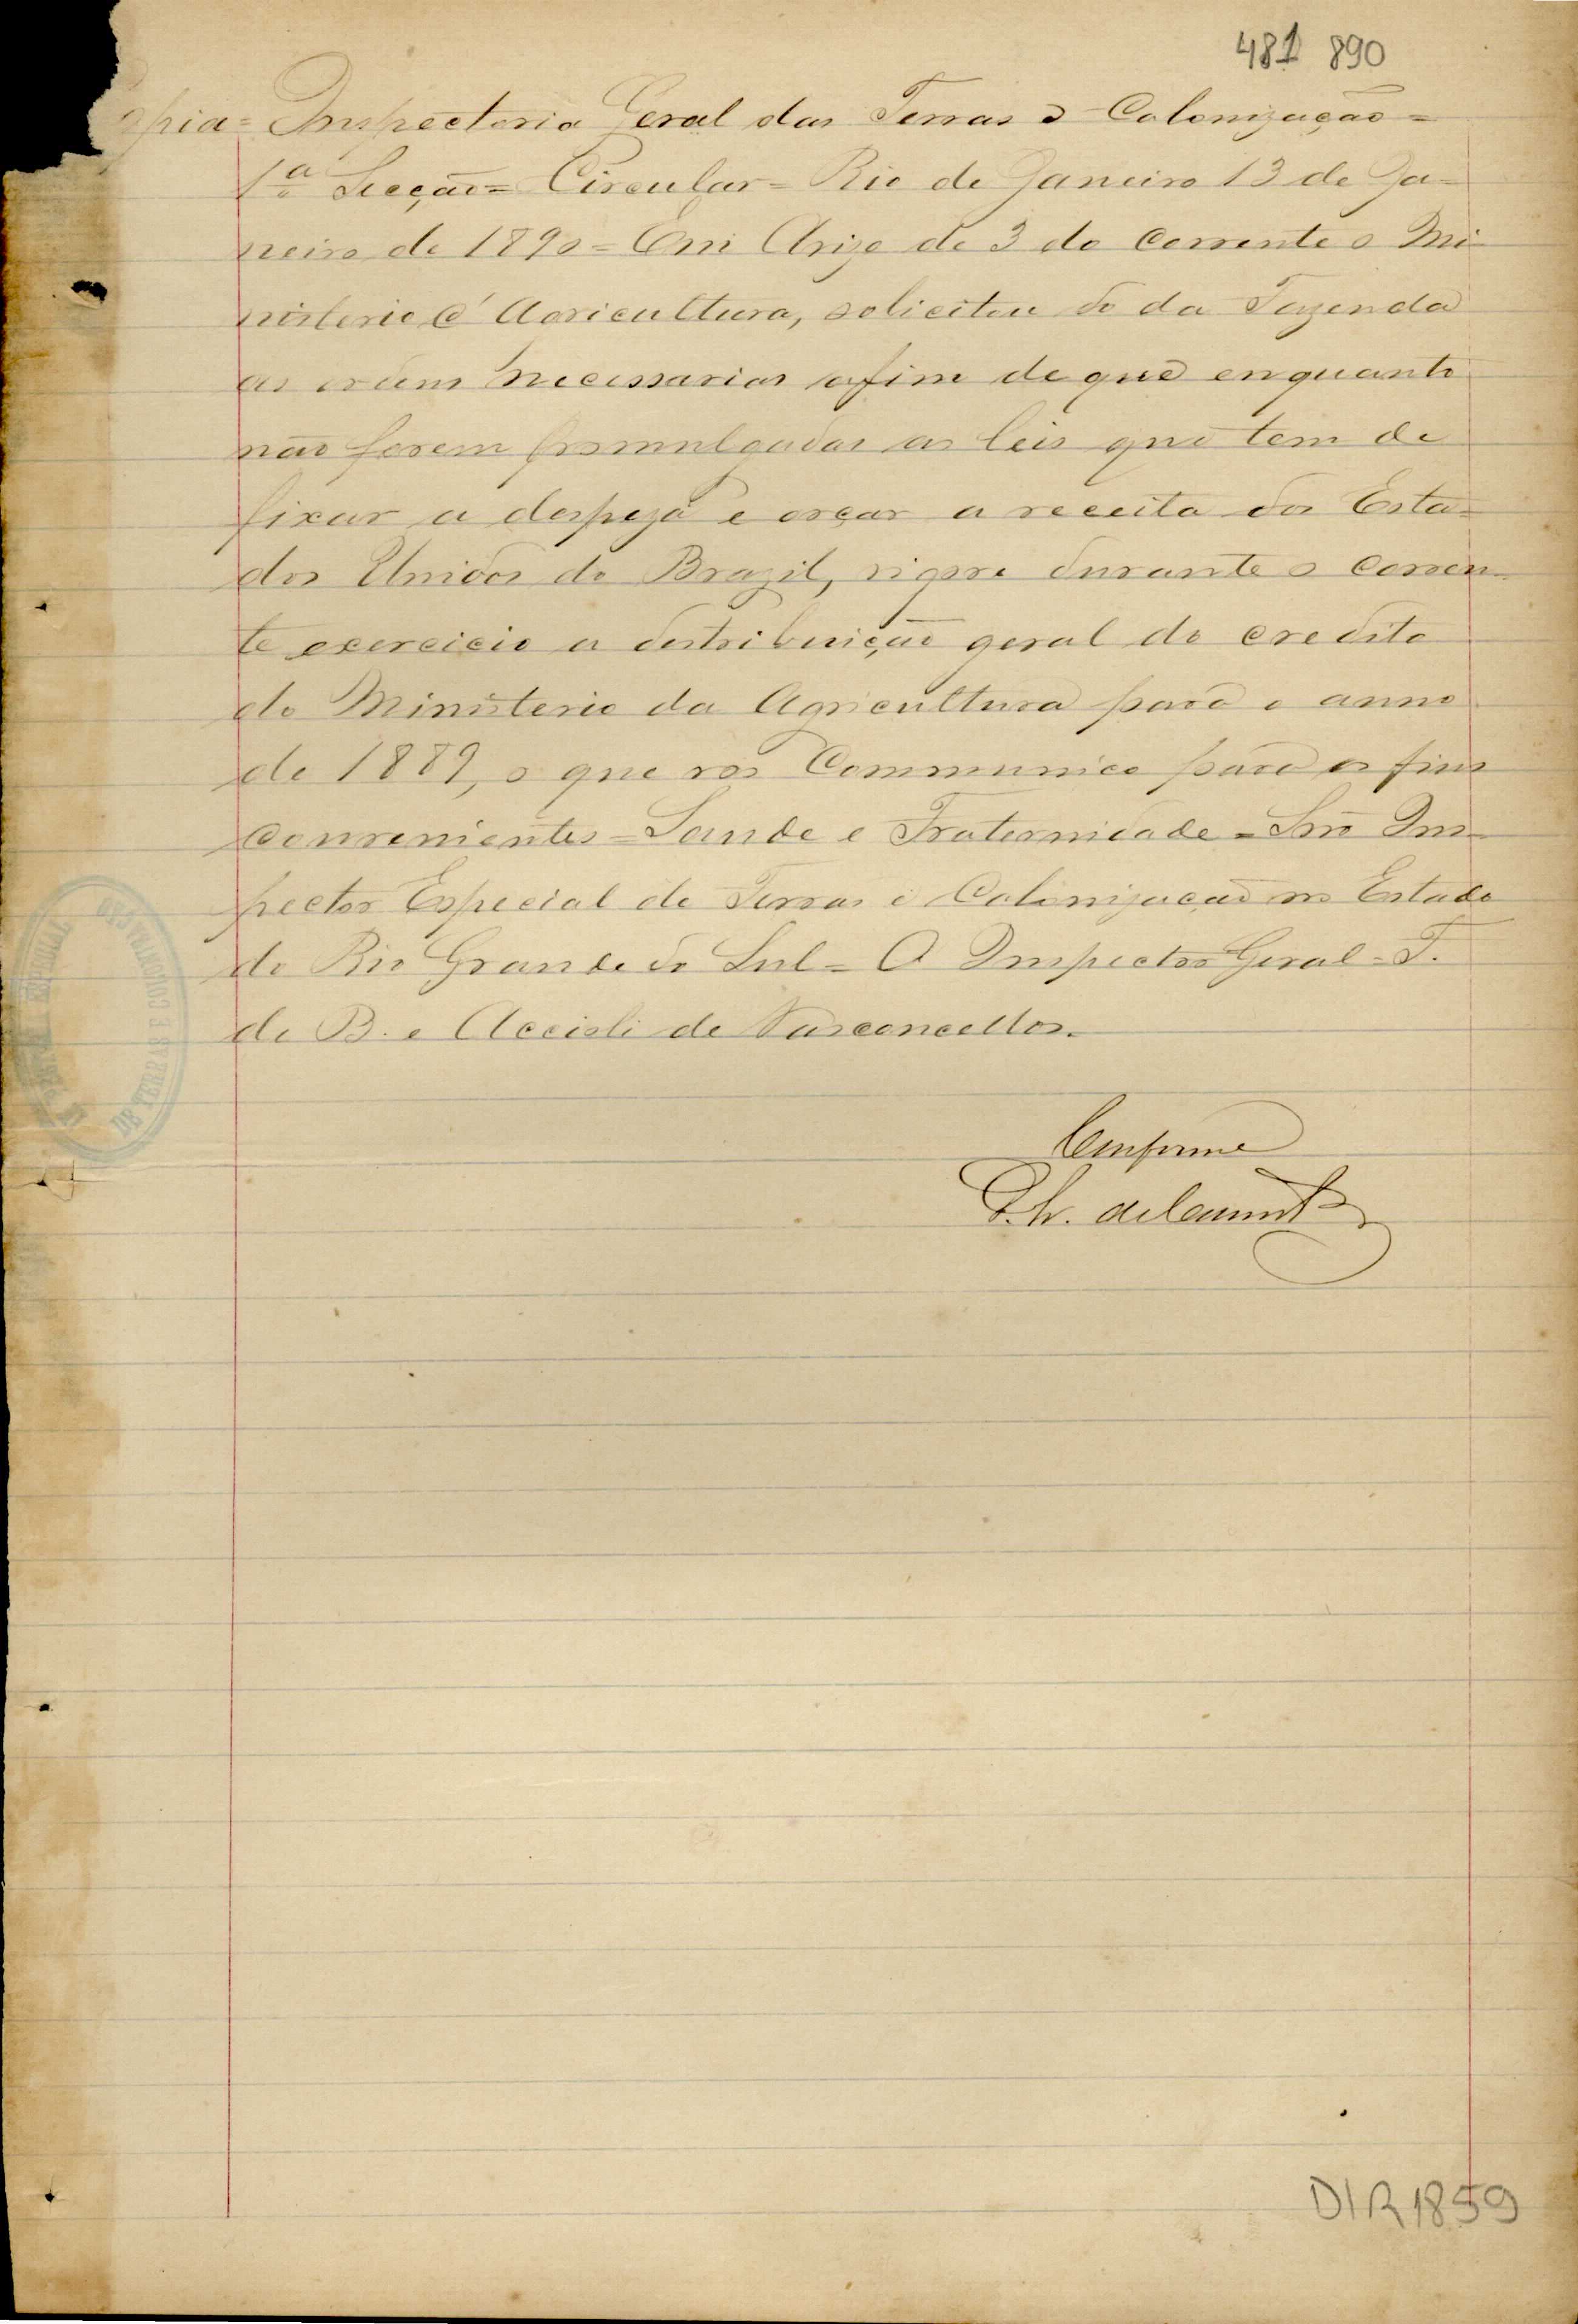 481 890
opia = Inspectoria Geral das Terras e Colonização =
1ª Secção = Circular = Rio de Janeiro 13 de Ja-
neiro de 1890 = Em Aviso de 3 do corrente o Mi-
nisterio d'Agricultura, solicitou do da Fazenda
as ordens necessarias afim de que enquanto
não forem promulgadas as leis que tem de
fixar a despeza e orçar a receita dos Esta-
dos Unidos do Brazil, vigore durante o corren-
te exercicio a destribuição geral do credito
do Ministerio da Agricultura para o anno
de 1889, o que vos communico para os fins
convenientes = Saude e Fraternidade = Snr Ins-
pector Especial de Terras e Colonização no Estado
do Rio Grande do Sul = O Inspector Geral = F.
de B. e Accioli de Vasconcellos.
Conforme
DE TERRAS E COLONISA
DIR1859